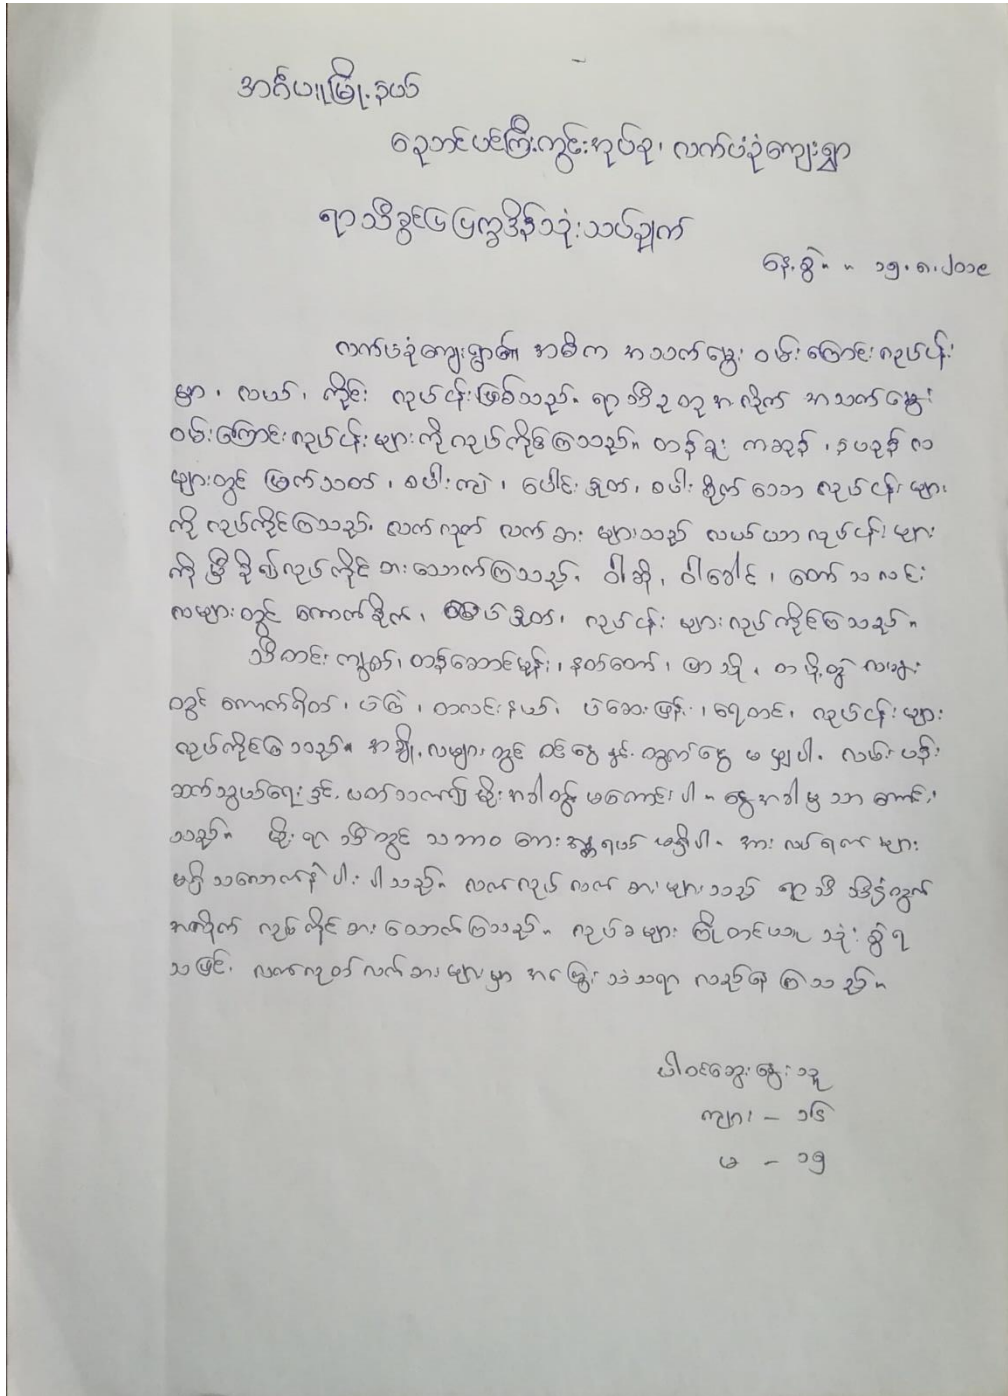 အင်္ဂပူမြို့နယ်
ညောင်ပင်ကြီးကွင်းအုပ်စု၊ လက်ပံခုံကျေးရွာ
ရာသီခွင်ပြပြက္ခဒိန်သုံးသပ်ချက်
နေ့စွဲ။ ။ ၁၅.၈.၂၀၁၉
လက်ပံခုံကျေးရွာ၏ အဓိက အသက်မွေး ဝမ်းကြောင်းလုပ်ငန်း
မှာ၊ လယ်၊ ကိုင်း လုပ်ငန်းဖြစ်သည်။ ရာသီဥတုအလိုက် အသက်မွေး
ဝမ်းကြောင်းလုပ်ငန်းများကိုလုပ်ကိုင်ကြသည်။ တန်ခူး ကဆုန်၊ နယုန်လ
များတွင် မြက်သတ်၊ စပါးကျဲ၊ ပေါင်းနှုတ်၊ စပါးစိုက်သော လုပ်ငန်းများ
ကို လုပ်ကိုင်ကြသည်။ လက်လုတ် လက်စား များသည် လယ်ယာလုပ်ငန်းများ
ကို မှီခိုလုပ်ကိုင် စားသောက်ကြသည်။ ဝါဆို၊ ဝါခေါင်၊ တော်သလင်း
လများတွင် ကောက်စိုက်၊ နှုတ်၊ လုပ်ငန်း များလုပ်ကိုင်ကြသည်။
သီတင်းကျွတ်၊ တန်ဆောင်မုန်း၊ နတ်တော်၊ ပြာသို၊ တပို့တွဲ လများ
တွင် ကောက်ရိတ်၊ ပဲကြဲ၊ တလင်းနယ်၊ ပဲဆေးဖြန်း၊ ရေတင်၊ လုပ်ငန်းများ
လုပ်ကိုင်ကြသည်။ အချို့လများတွင် ဝင်ငွေနှင့် ထွက်ငွေ မမျှပါ။ လမ်းပန်း
ဆက်သွယ်ရေးနှင့် ပတ်သက်၍ မိုးအခါတွင် မကောင်းပါ။ နွေအခါမှသာ ကောင်း
သည်။ မိုးရာသီတွင် သဘာဝ ဘေးအန္တရာယ် မရှိပါ။ အားလပ်ရက်များ
မရှိသလောက်နဲပါးပါသည်။ လက်လုပ်လက်စားများသည် ရာသီ
အလိုက် လုပ်ကိုင်စားသောက်ကြသည်။ လုပ်ခများ ကြိုတင်ယူ သုံးစွဲရ
သဖြင့် လက်လုတ်လက်စားများမှာ အကြွေးသံသရာ လည်နေကြသည်။
ပါဝင်ဆွေးနွေးသူ
ကျား - ၁၆
မ - ၁၅